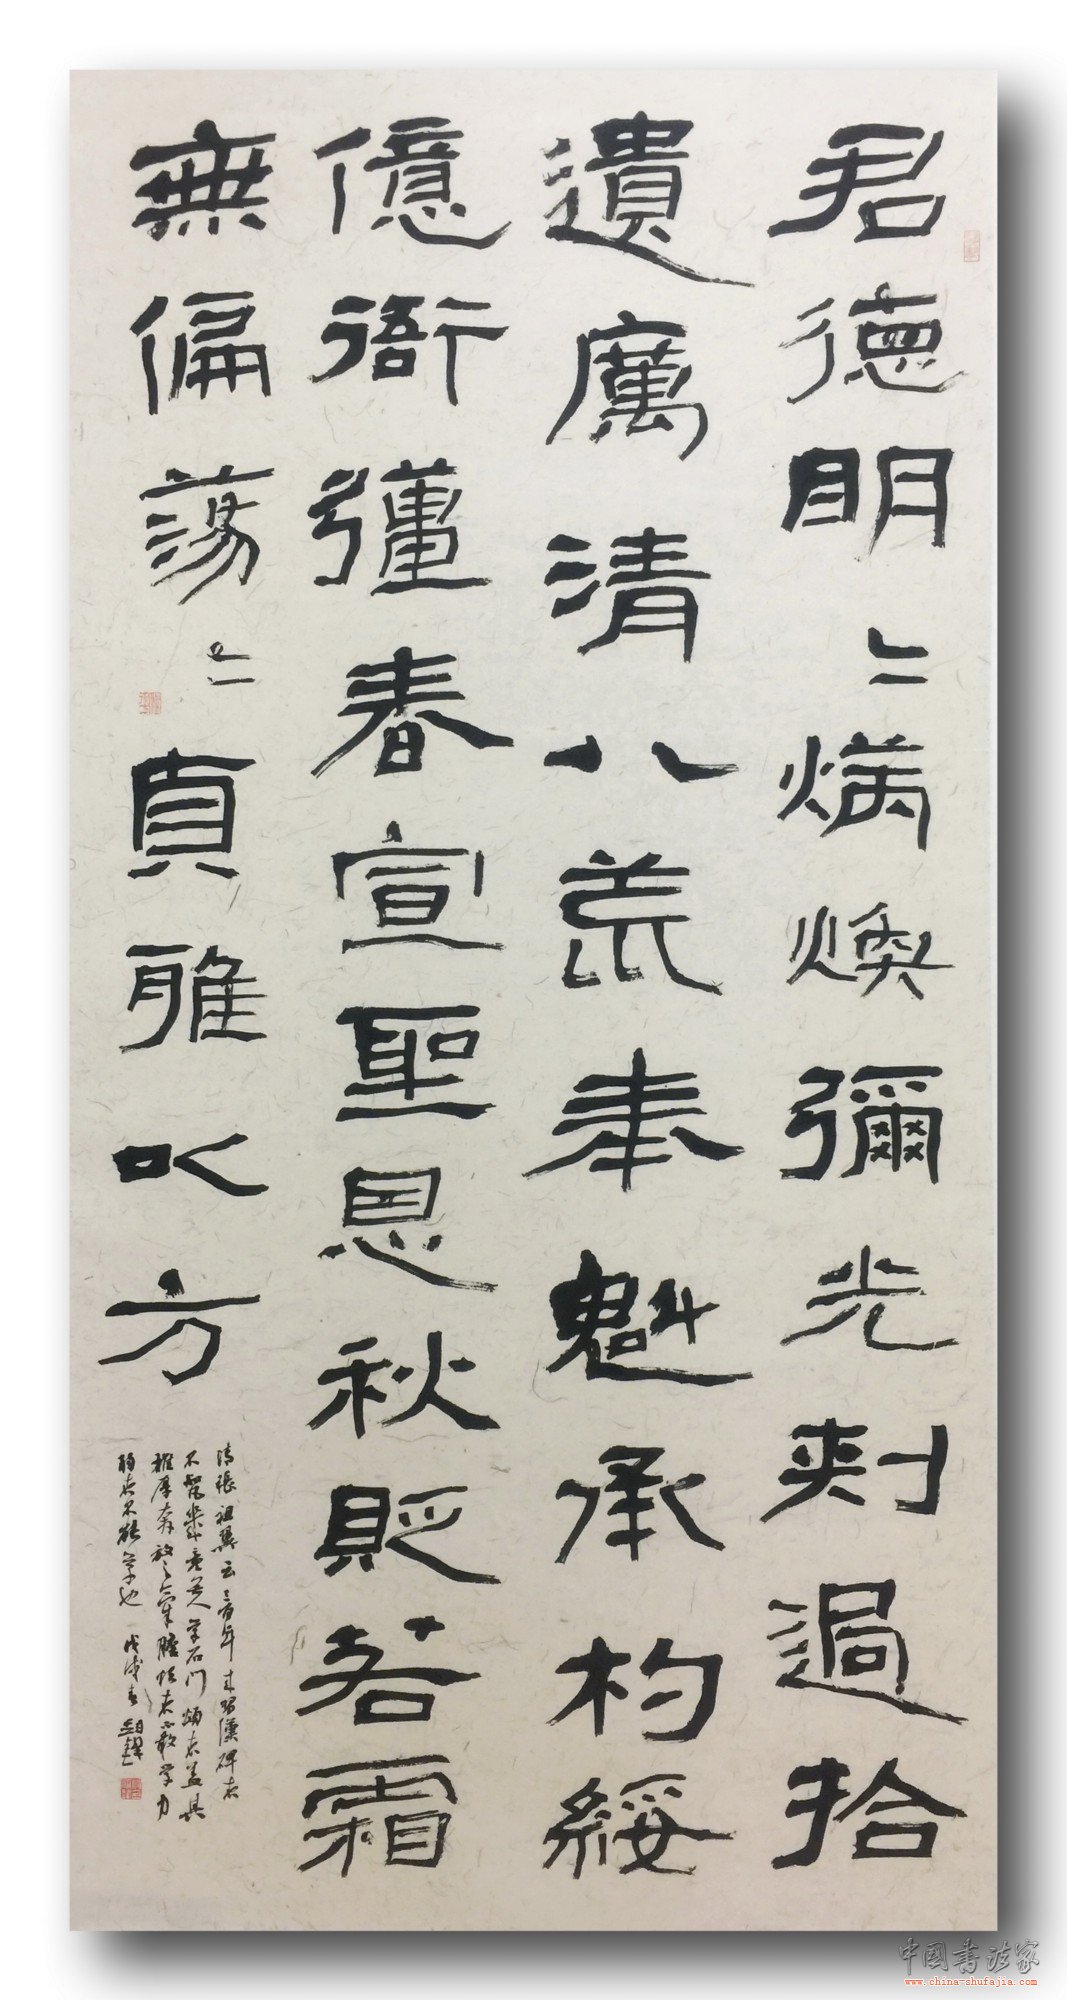 君德明=煥煥彌光刺過拾
遺厲清八荒奉魁承杓綏
億衙彊春宣聖恩秋貶若霜
無偏蕩=貞雅以方
清張祖翼云三百年來習漢碑者
不知凡幾竟無人學石門頌者蓋其
雄厚奔放之氣膽怯者不敢學力
弱者不能學也 戊戌春
中國書法家
www.china-shufajia.com